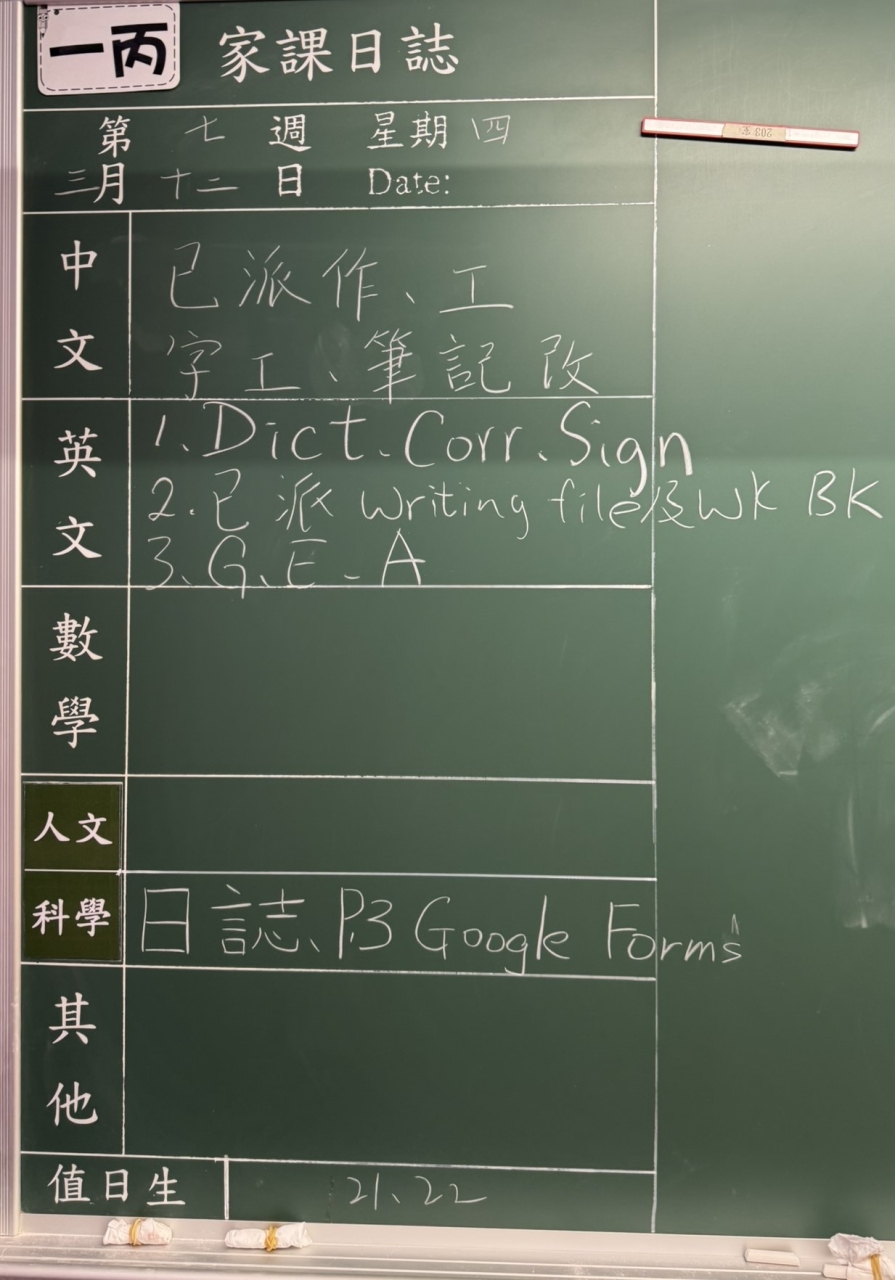 一丙
家課日誌
第 七 週 星期 四
三月 十二 日 Date:
中文
已派作、工
字工、筆記改
英文
1.Dict.Corr.Sign
2.已派 writing file及WK BK
3.G.E.A
數學
人文
科學
日誌、P.3 Google Forms
其他
值日生
21、22